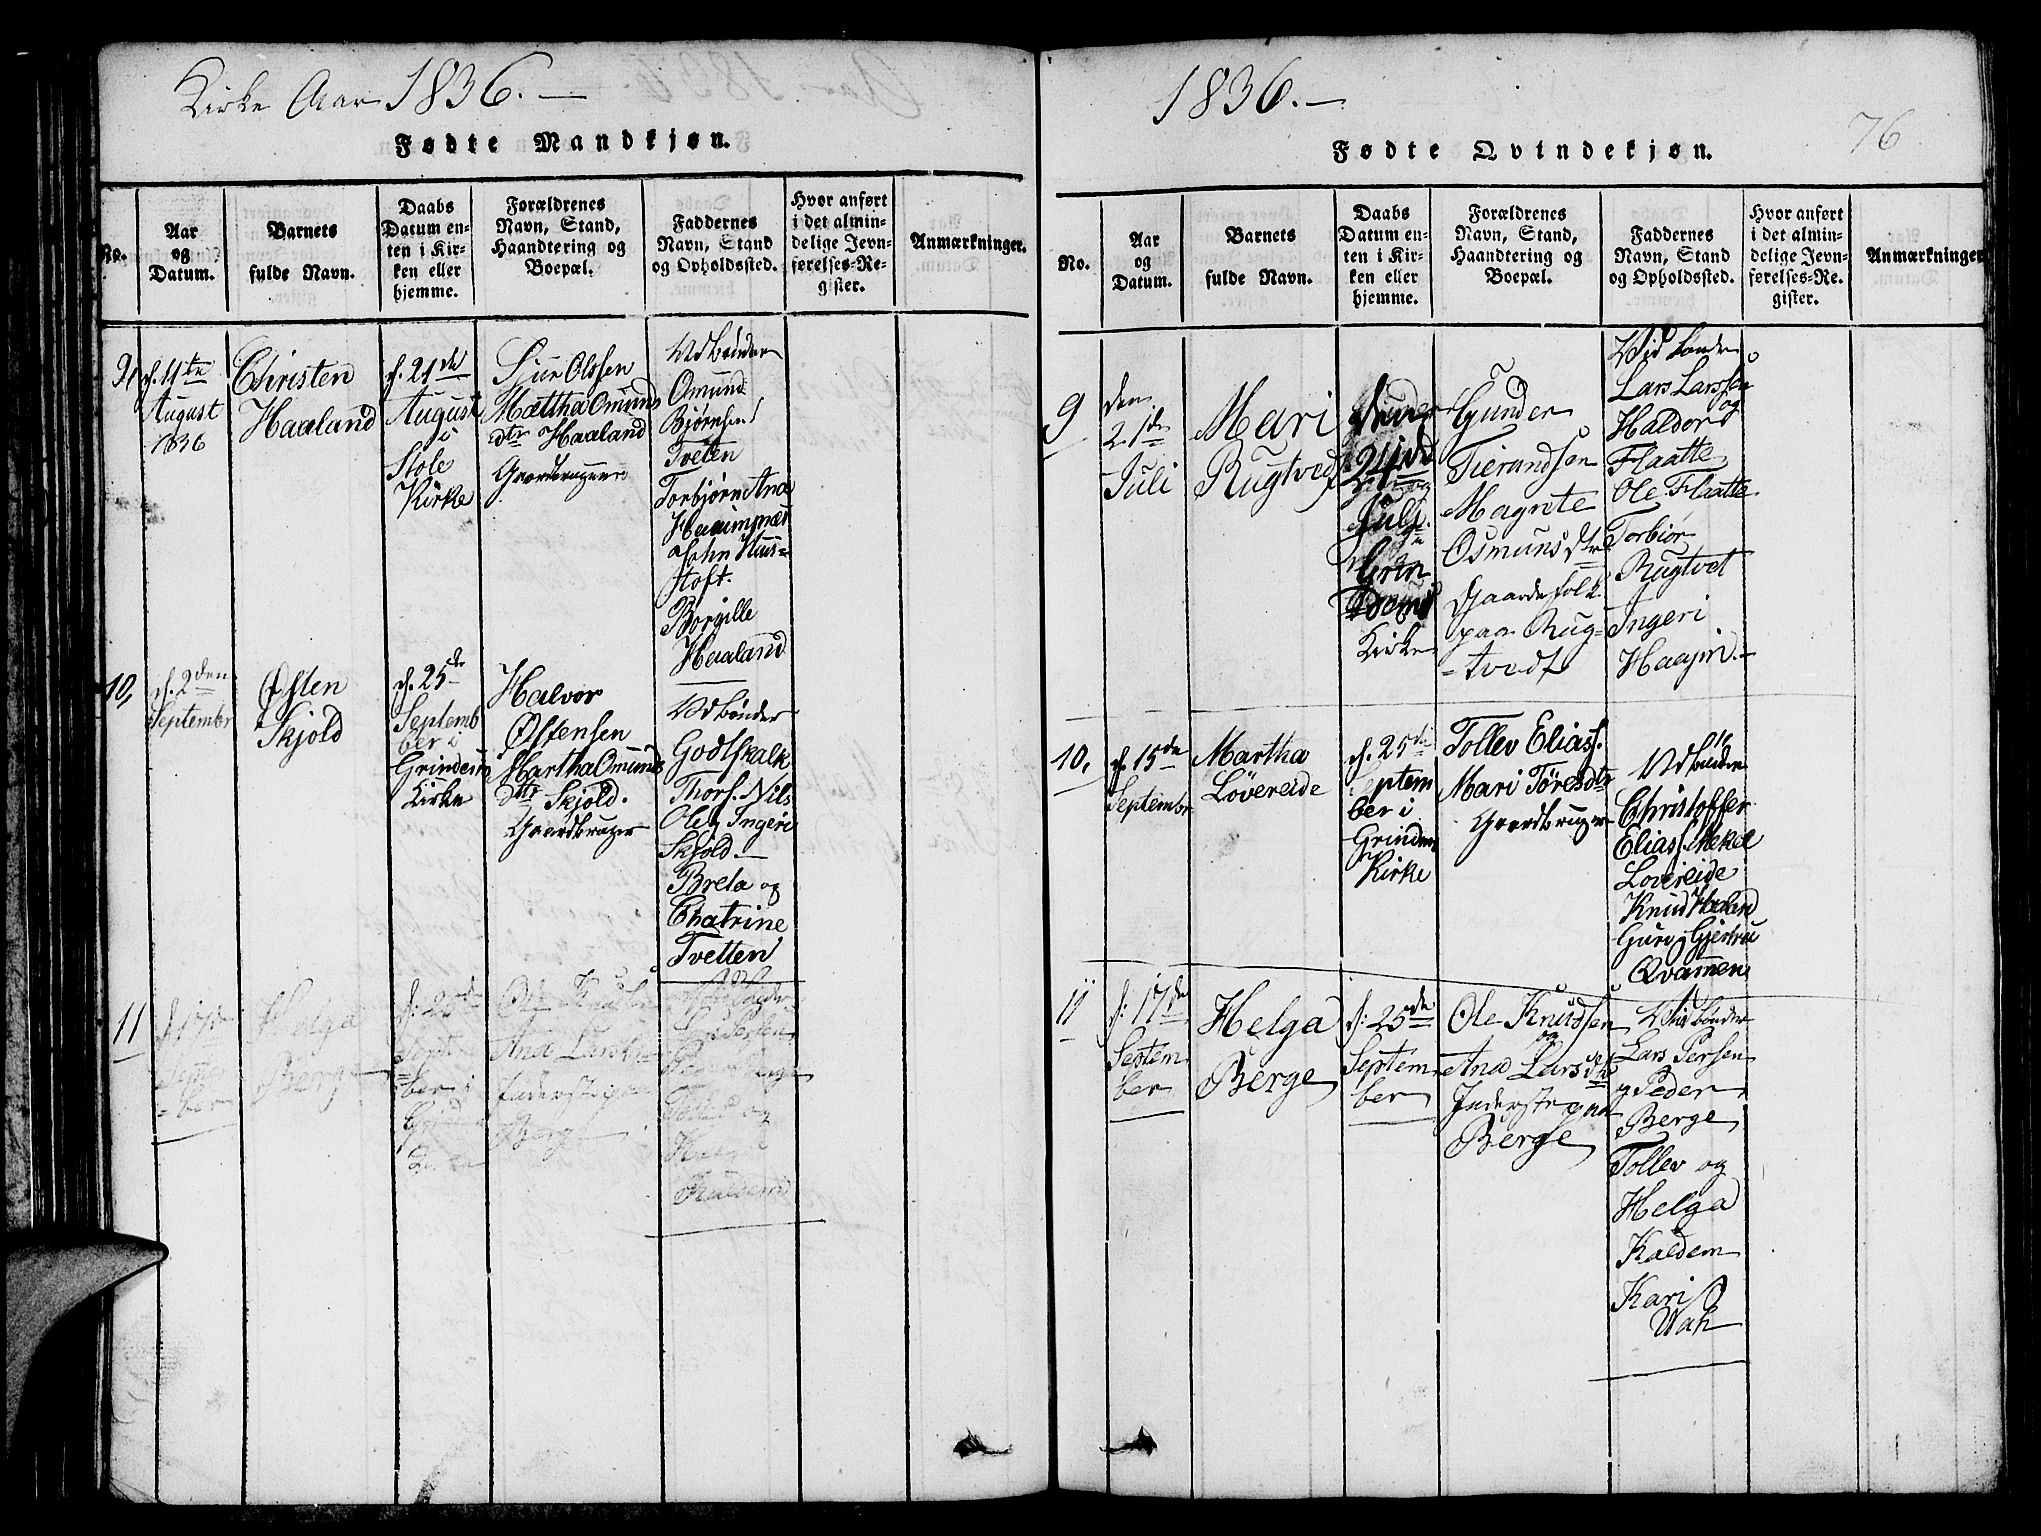 Kirke Aar 1836.
Fødte Mandkjøn.
No.
Aar
og
Datum.
Barnets
fulde Navn.
Daabs
Datum en-
ten i Kir-
ken eller
hjemme.
Forældrenes
Navn, Stand,
Haandtering og
Boepæl.
Faddernes
Navn, Stand
og Opholdssted.
Hvor anført
i det almin-
delige Jevn-
førelses-Re-
gister.
Anmærkninger.
9,
d. 11te
August
1836
Christen
Haaland
d. 21de
August
i
Stole
Kirke
Siur Olssen
Mættha Omunds
dtr Haaland
Gaardbruger
Vidbønder
Omund
Bjørnsen
Tveten
Torbjørn Ana
John Hus-
toft.
Borgille
Haaland
10,
d. 2den
Septembr
Østen
Skjold
d. 25de
Septemb
ber i
Grindem
Kirke
Halvor
Østensen
Martha Omunds
dtr Skjold.
Gaardbruger
Vidbønder
Godtskalk
Thors. Nils
Ole, Ingeri
Skjold
Breta og
Chatrine
Tvetten
11
d. 17de
Septem
ber
Helga
Berge
d: 25de
Septem
ber i
Grind
Ole Knuds
Ana Larsdtr
Inderste paa
Berge
Lars Persen
Peder Berge
Tolled og
Helga
Kaldem
1836.
76
Fødte Qvindekjøn.
No.
Aar
og
Datum.
Barnets
fulde Navn.
Daabs
Datum en-
ten i Kir-
ken eller
hjemme.
Forældrenes
Navn, Stand,
Haandtering og
Boepæl.
Faddernes
Navn, Stand
og Opholdssted.
Hvor anført
i det almin-
delige Jevn-
førelses-Re-
gister.
Anmærkninger
9
den
21de
Juli
Mari
Rugtvedt
24de
Juli
Grin
Kirke
Gunder
Tierandsen
Magrete
Osmunsdtr
Gaardesfolk
paa Rug-
-tvedt
Vid bonder
Lars Larssen
og
Haldor
Flaatte
Ole Flaatte
Torbiør
Rugtvet
Ingeri
10,
d. 15de
Septembr
Martha
Løvereide
d. 25de
Septem
ber i
Grindem
Kirke
Tollev Eliass.
Mari Tøresdtr
Gaardbruger
Vidbønder
Christoffer
Eliass. Mekel
Lovereide
Knud Haaland
Guro, Gjertru
Qvamen
11
d: 17de
Septem
ber
Helga
Berge
d: 25de
Septem
ber
Ole Knudsen
og
Ana Larsdtr
Inderste paa
Berge
Vidbønder
Lars Persen
og Peder
Berge
Tollev og
Helga
Kaldem
Kari